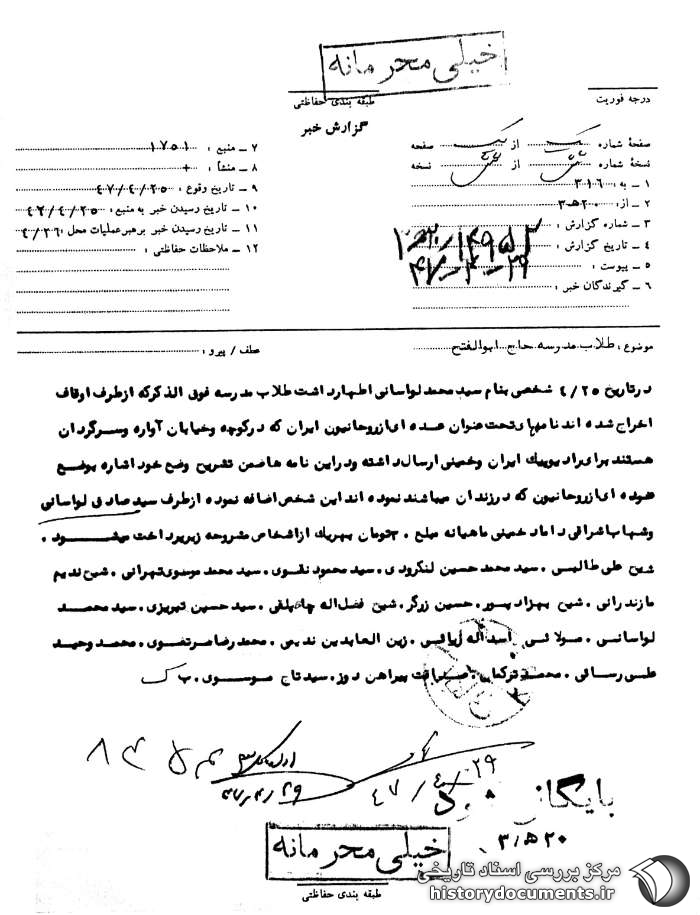 خیلی محرمانه
درجه فوریت
طبقه بندی حفاظتی
گزارش خبر
صفحهٔ شماره یک از یک صفحه
نسخهٔ شماره از نسخه
۱ ـ به: ۳۱۶
۲ ـ از: ۲۰ ه‍ ۳
۳ ـ شماره گزارش :
۴ ـ تاریخ گزارش :
۵ ـ پیوست :
۶ ـ گیرندگان خبر :
۷ ـ منبع : ۱۷۵۱
۸ ـ منشأ : +
۹ ـ تاریخ وقوع : ۴۷/۴/۲۵
۱۰ ـ تاریخ رسیدن خبر به منبع: ۴۷/۴/۲۵
۱۱ ـ تاریخ رسیدن خبر برهبر عملیات محل : ۴/۲۶
۱۲ ـ ملاحظات حفاظتی :
موضوع : طلاب مدرسه حاج ابوالفتح
عطف / پیرو :
درتاریخ ۴/۲۵ شخصی بنام سید محمد لواسانی اظهارداشت طلاب مدرسه فوق الذکرکه ازطرف اوقاف
اخراج شده اند نامهای تحت عنوان عده ای ازروحانیون ایران که درکوچه وخیابان آواره وسرگردان
هستند برای رادیوپیک ایران وخمینی ارسال داشته ودراین نامه هاضمن تشریح وضع خود اشاره بوضع
عده ای ازروحانیون که درزندان میباشند نموده اند این شخص اضافه نموده ازطرف سید صادق لواسانی
وشهاب اشراقی داماد خمینی ماهیانه مبلغ تومان بهریک ازاشخاص مشروحه زیرپرداخت میشـــود .
شیخ علی طالبی . سید محمد حسین لنگرودی . سید محمود نقوی . سید محمد موسوی تهرانی . شیخ ندیم
مازندرانی . شیخ بهزادپور . حسین زرگر . شیخ فضل اله چاپلقی . سید حسین تبریزی . سید محمـــد
لواسانی . مولائی . اسداله زیائی . زین العابدین ندیمی . محمد رضا مرتضوی . محمد وحیـد
علی رسائی . محمد ترکمان . صداقت پیراهن دوز . سید تاج موســوی . ب ک
۴۷/۴/۲۹
بایگانی شود
۲۰ ه‍ ۳
خیلی محرمانه
طبقه بندی حفاظتی
مرکز بررسی اسناد تاریخی
historydocuments.ir